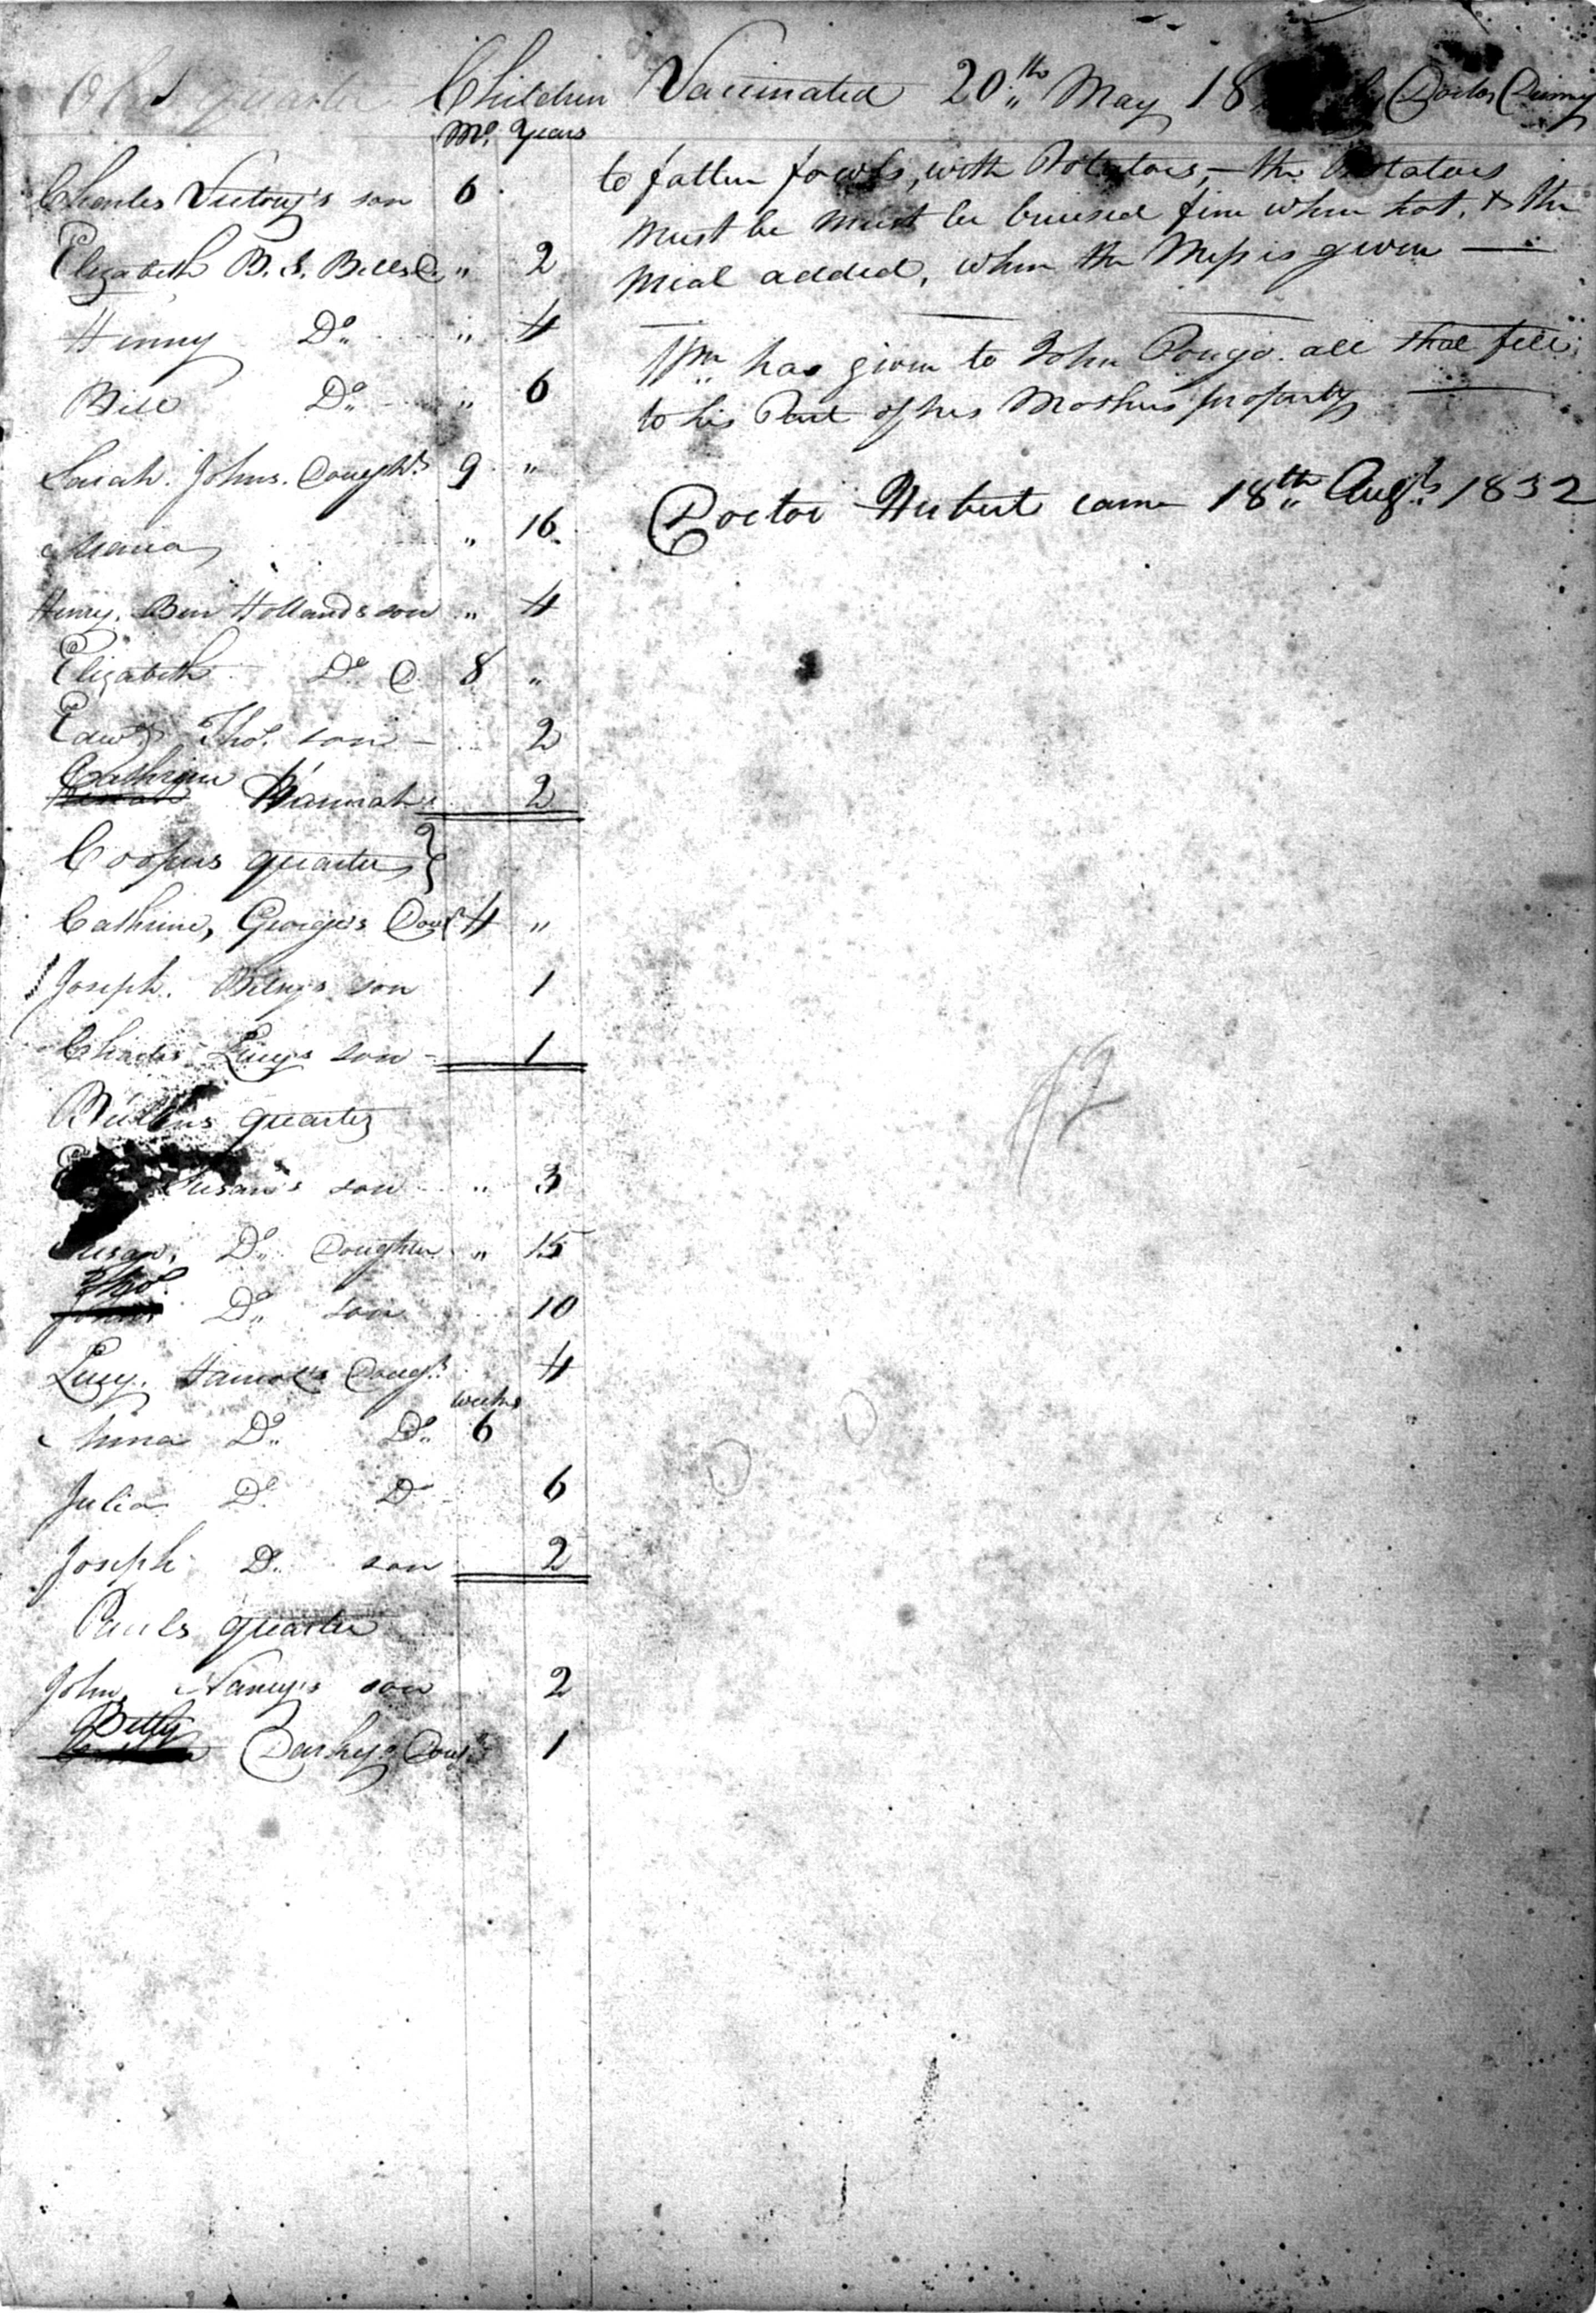 Old quarter Children Vaccinated 20th May 18 by Doctor
Mo. Years
Charles Victory's son 6
Elizabeth B. S. Bells D " 2
Henny Do " 4
Bill Do " 6
Sarah. Johns. Dought 9 "
Maria " 16
Henry. Ben Hollands son " 4
Elizabeth Do D 8 "
Edwd Thos. son 2
Cathrine Hannahs 2
Coopers quarter }
Cathrine, George's Dour 4 "
Joseph. Betsy's son 1
Charles Lucys son 1
Butlers quarter
Susan's son " 3
Susan, Do Doughter " 15
Thos. Do son 10
Lucy. Dought 4
weeks
Anna Do Do 6
Julia Do Do 6
Joseph Do son 2
Pauls quarter
John, Nancy's son 2
Betty Darkeys Dour 1
to fatten fowls, with Potatoes, — the Potatoes
must be must be bruised fine when hot, & the
meal added, when the Mess is given —
Wm has given to John all that fell
to his Part of his Mothers property
Doctor Hubert came 18th Augt 1832